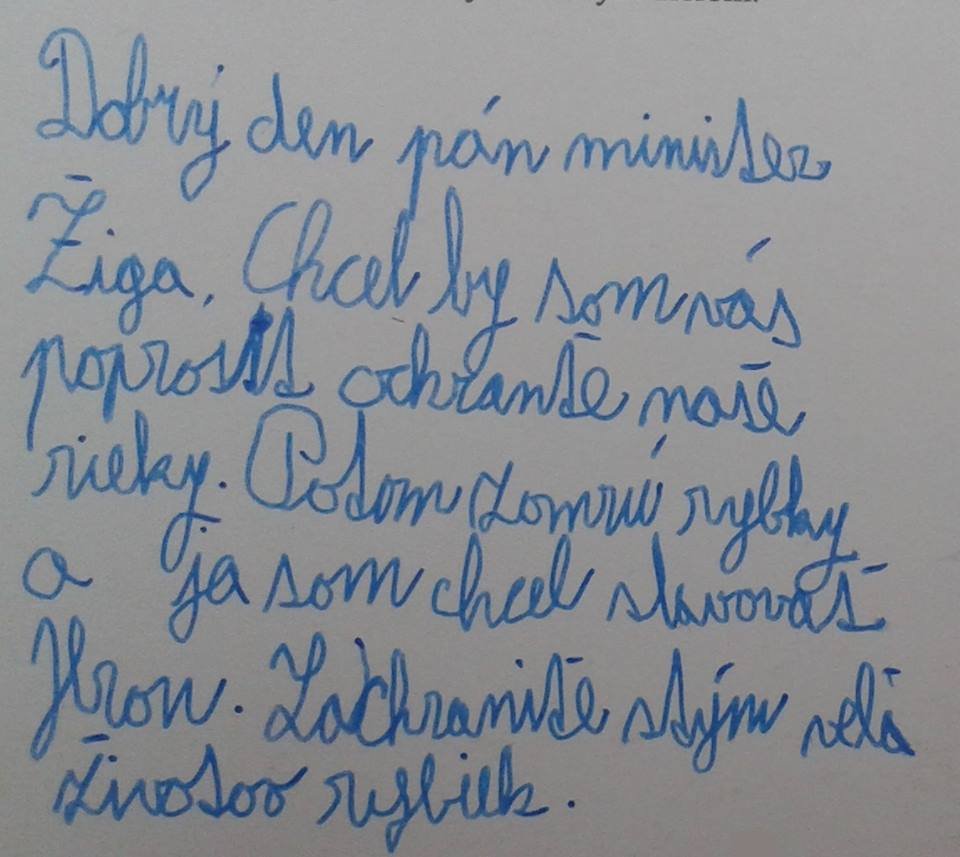 Dobrý den pán minister
Žiga, Chcel by som vás
poprosit ochrante naše
rieky. Potom zomrú rybky
a ja som chcel stavovať
Hron. Zachranite stým vela
životov rybiek.